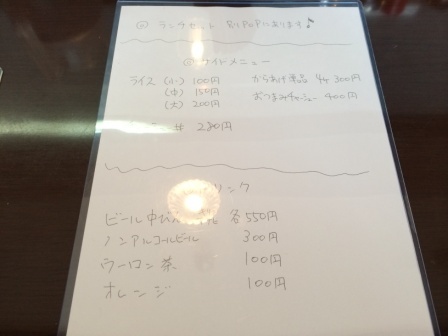 ランチセット 別POPにあります♪
サイドメニュー
ライス (小) 100円 からあげ単品 4ケ 300円
(中) 150円 おつまみチャーシュー 400円
(大) 200円
丼 280円
リンク
ビール 中びん 各550円
ノンアルコールビール 300円
ウーロン茶 100円
オレンジ 100円